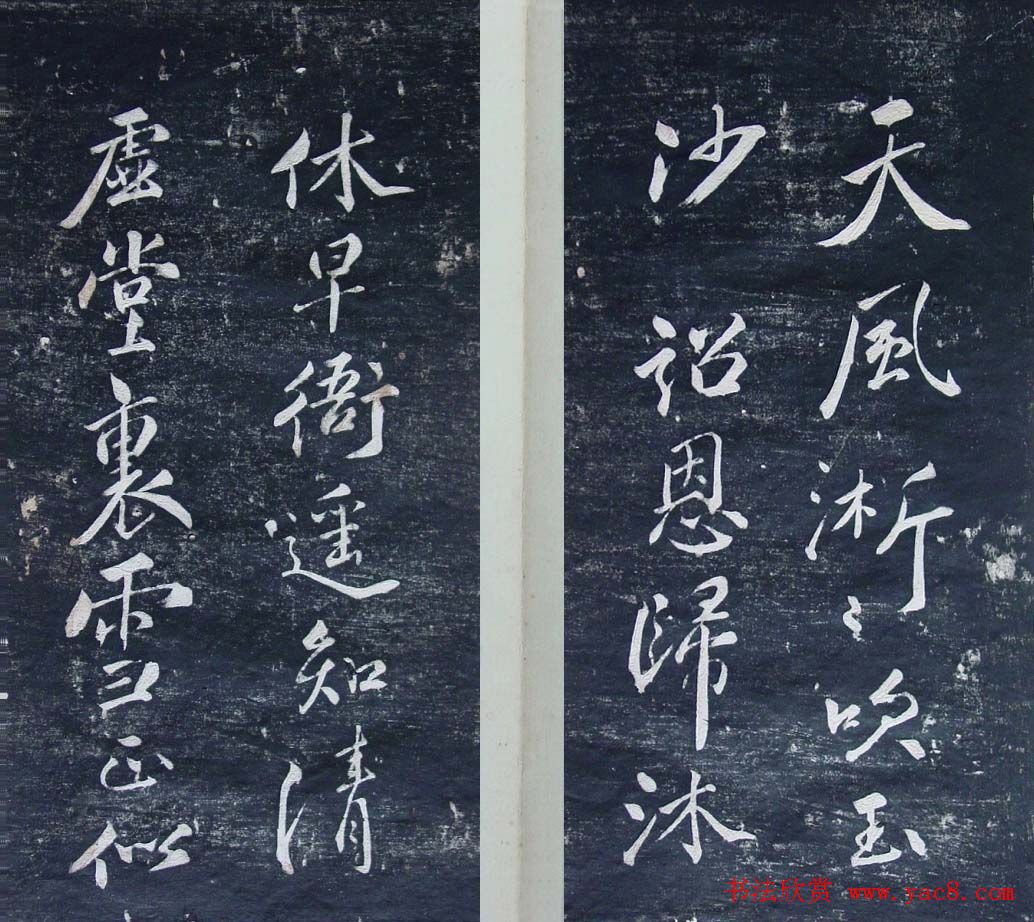 天風淅〻吹玉
沙詔恩歸沐
休早衙遥知清
虛堂裏雪正似
书法欣赏 www.yac8.com